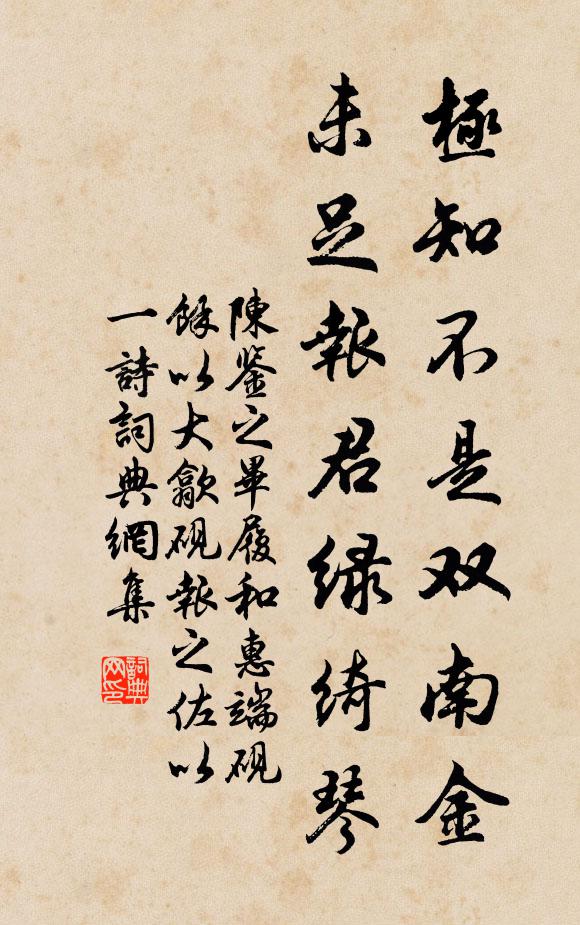 極知不是双南金
未足報君緑綺琴
陳鉴之畢履和惠端硯
餘以大歙硯報之佐以
一詩詞典網集
詞典
网印